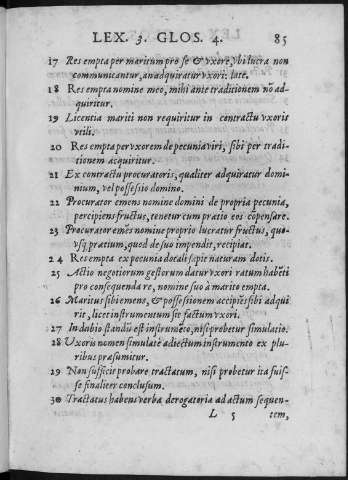 LEX. 3. GLOS. 4. 85
17 Res empta per maritum pro se & vxore, vbi lucra non
communicantur, an adquiratur vxori: late.
18 Res empta nomine meo, mihi ante traditionem nõ ad-
quiritur.
19 Licentia mariti non requiritur in contractu vxoris
vtili.
20 Res empta per vxorem de pecunia viri, sibi per tradi-
tionem acquiritur.
21 Ex contractu procuratoris, qualiter adquiratur domi-
nium, vel possessio domino.
22 Procurator emens nomine domini de propria pecunia,
percipiens fructus, tenetur cum pratio eos cõpensare.
23 Procurator emẽs nomine proprio lucratur fructus, quo-
vsq; pratium, quod de suo impendit, recipiat.
24 Res empta ex pecunia dotali sapit naturam dotis.
25 Actio negotiorum gestorum datur vxori ratum habẽti
pro consequenda re, nomine suo à marito empta.
26 Maritus sibi emens, & possessionem accipiẽs sibi adqui
rit, licet instrumentum sit factum vxori.
27 In dubio standũ est instrumẽto, nisi probetur simulatio.
28 Vxoris nomen simulatè adiectum instrumento ex plu-
ribus prasumitur.
29 Non sufficit probare tractatum, nisi probetur ita fuis-
se finaliter conclusum.
30 Tractatus habens verba derogatoria ad actum sequen-
L 5 tem,